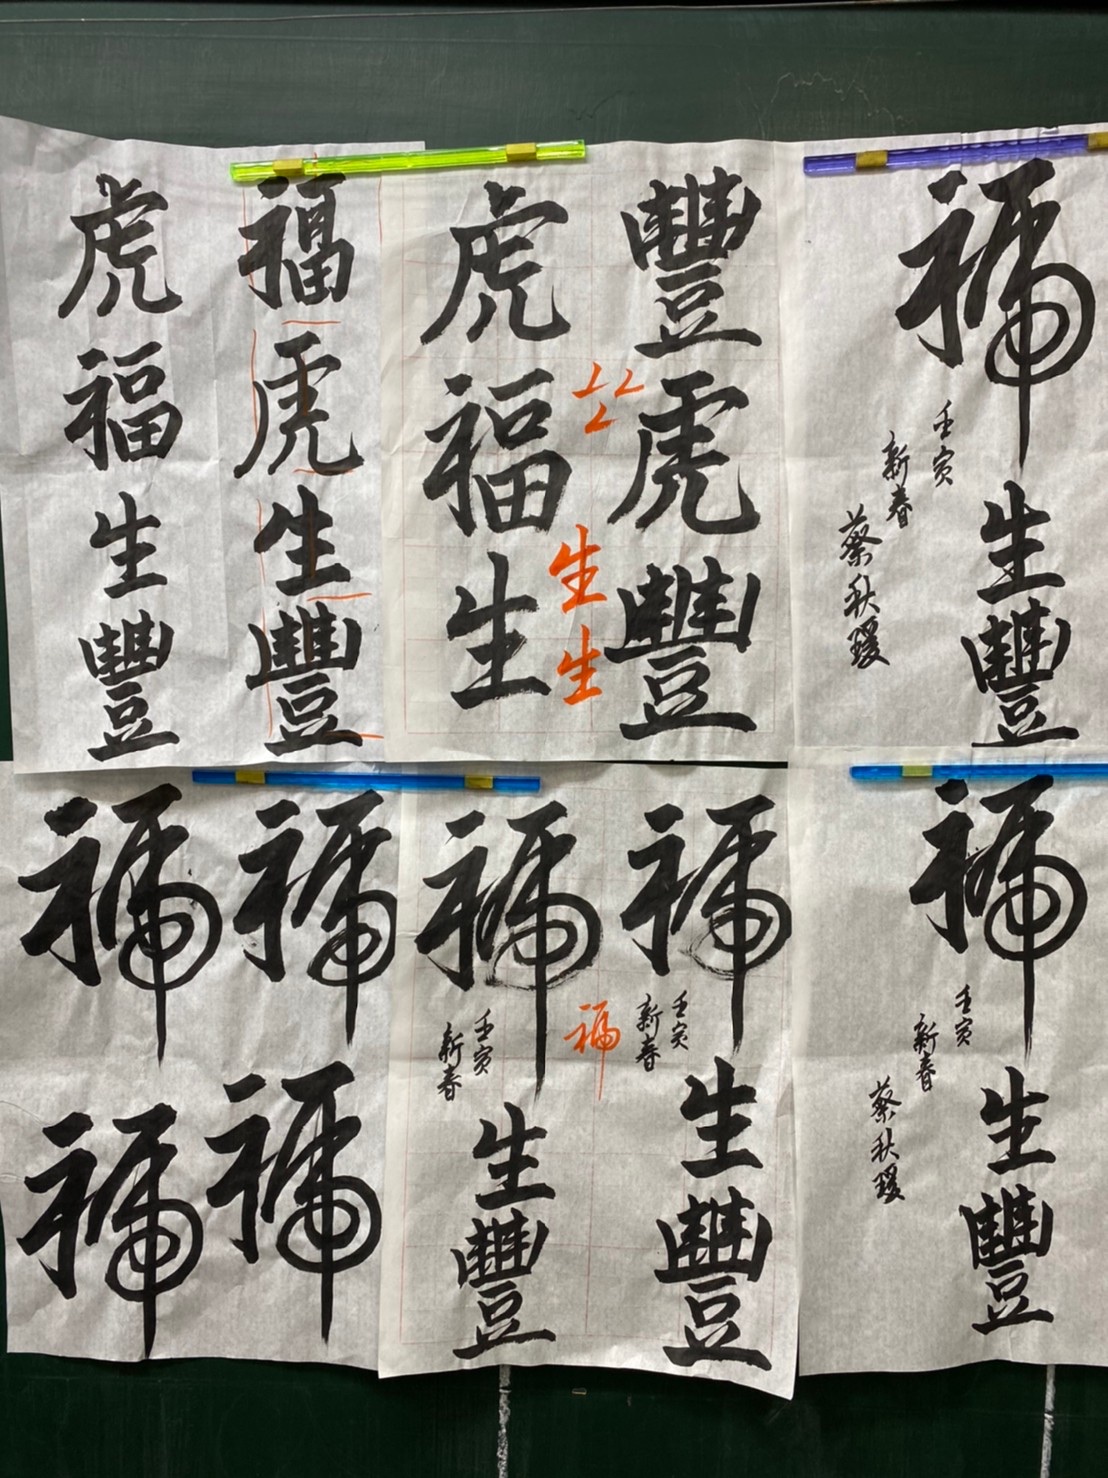 福生豐
壬寅
新春
蔡秋瑗
豐虎豐
生
生
虎福生
福虎生豐
虎福生豐
福生豐
壬寅
新春
蔡秋瑗
福生豐
壬寅
新春
福
福生豐
壬寅
新春
福福
福福